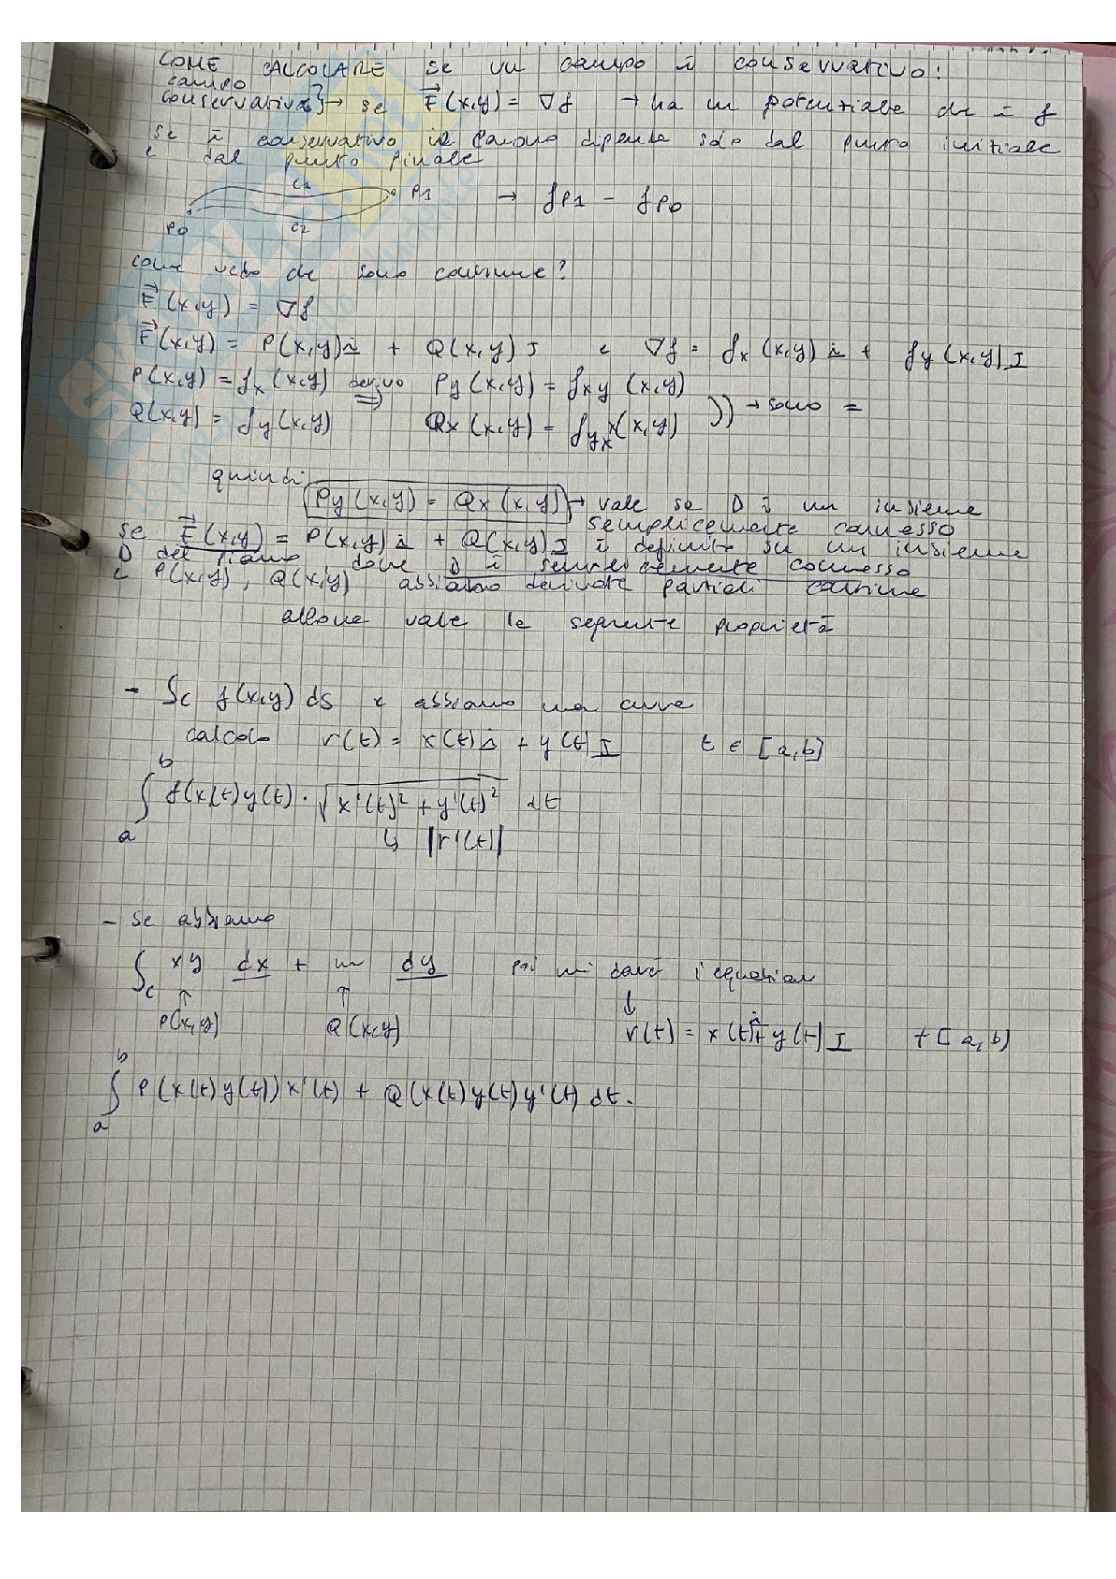 COME CALCOLARE se un campo è conservativo:
campo
conservativo} → se F(x,y) = ∇f → ha un potenziale che è f
se è conservativo il lavoro dipende solo dal punto iniziale
e dal punto finale
C1 P1 → fP1 - fP0
P0 C2
come vedo che sono
F(x,y) = ∇f
F(x,y) = P(x,y)i + Q(x,y)J e ∇f = fx(x,y)i + fy(x,y)J
P(x,y) = fx(x,y) derivo Py(x,y) = fxy(x,y)
Q(x,y) = fy(x,y) ⇒ Qx(x,y) = fyx(x,y) )) → sono =
quindi
Py(x,y) = Qx(x,y) → vale se D è un insieme
semplicemente connesso
se F(x,y) = P(x,y)i + Q(x,y)J è definito su un insieme
D del piano, dove D è semplicemente connesso
e P(x,y), Q(x,y) abbiano derivate parziali continue
allora vale la seguente proprietà
- Se f(x,y) ds e abbiamo una curva
calcolo r(t) = x(t)i + y(t)J t ∈ [a,b]
∫ₐᵇ f(x(t)y(t) · √x'(t)² + y'(t)² dt
↳ |r'(t)|
- Se abbiamo
∫c xy dx + dy poi mi darà
↑ ↑ ↓
P(x,y) Q(x,y) r(t) = x(t)i + y(t)J t [a,b)
∫ₐᵇ P(x(t)y(t))x'(t) + Q(x(t)y(t)y'(t) dt.